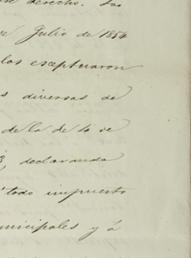 derecho. Las
Julio de 1854
las esceptuaron
s diversas de
de la de lo se
declarando
todo impuesto
nicipales y á